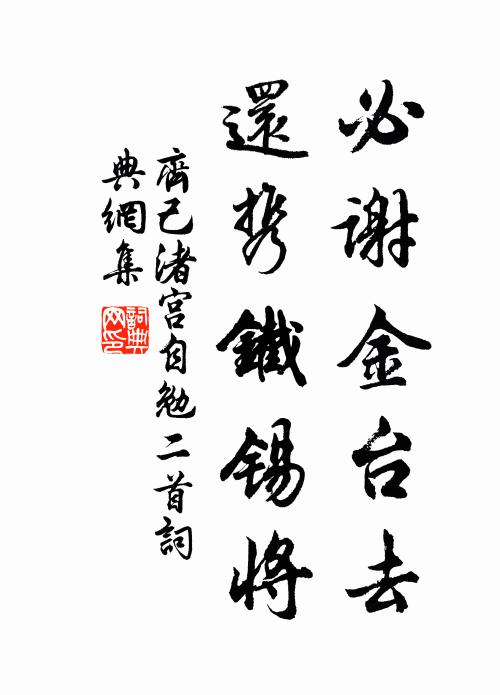 必谢金台去
還携鐵锡將
齊己渚宮自勉二首詞
典網集
詞典网印